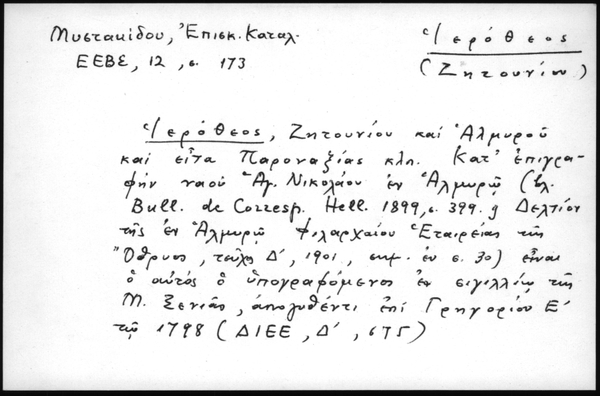 Μυστακίδου, Ἐπισκ. Καταλ.
ΕΕΒΣ, 12, σ. 173
Ἱερόθεος
(Ζητουνίου)
Ἱερόθεος, Ζητουνίου καί Ἁλμυροῦ
καί εἶτα Παροναξίας κλπ. Κατ' ἐπιγρα-
φήν ναοῦ Ἁγ. Νικολάου ἐν Ἁλμυρῷ (βλ.
Bull. de Corresp. Hell. 1899, σ. 399. Δελτίον
τῆς ἐν Ἁλμυρῷ Φιλαρχαίου Ἑταιρείας τῆς
"Ὄθρυος, τεῦχ. Δ', 1901, σημ. ἐν σ. 30) εἶναι
ὁ αὐτός ὁ ὑπογραφόμενος ἐν σιγιλλίῳ τῆς
Μ. Ξενιᾶς, ἀπολυθέντι ἐπί Γρηγορίου Ε'
τῷ 1798 (ΔΙΕΕ, Δ', 675)